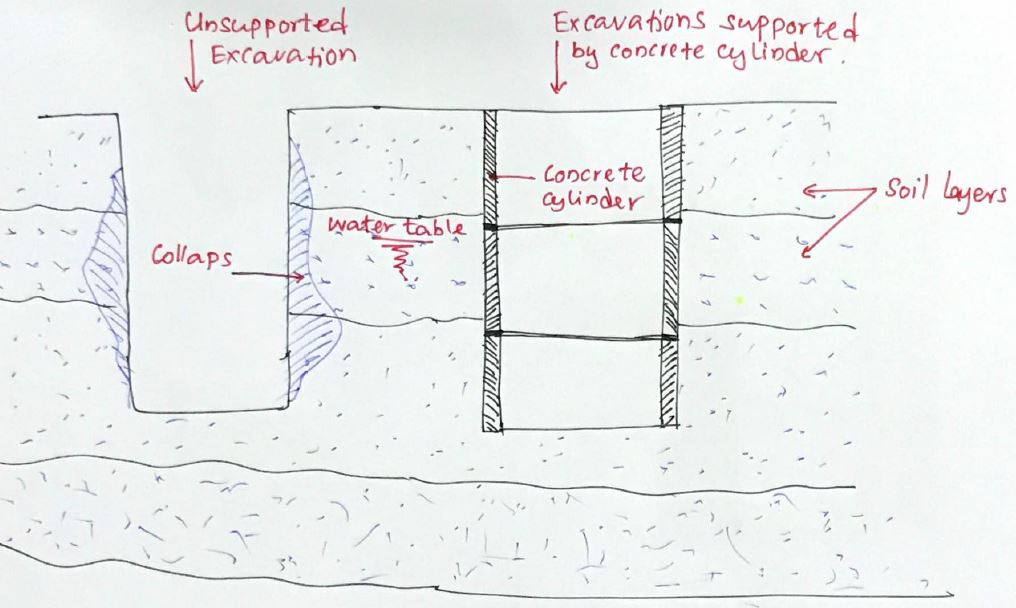 Unsupported
Excavation
Excavations supported
by concrete cylinder.
Concrete
cylinder
Soil layers
water table
Collaps